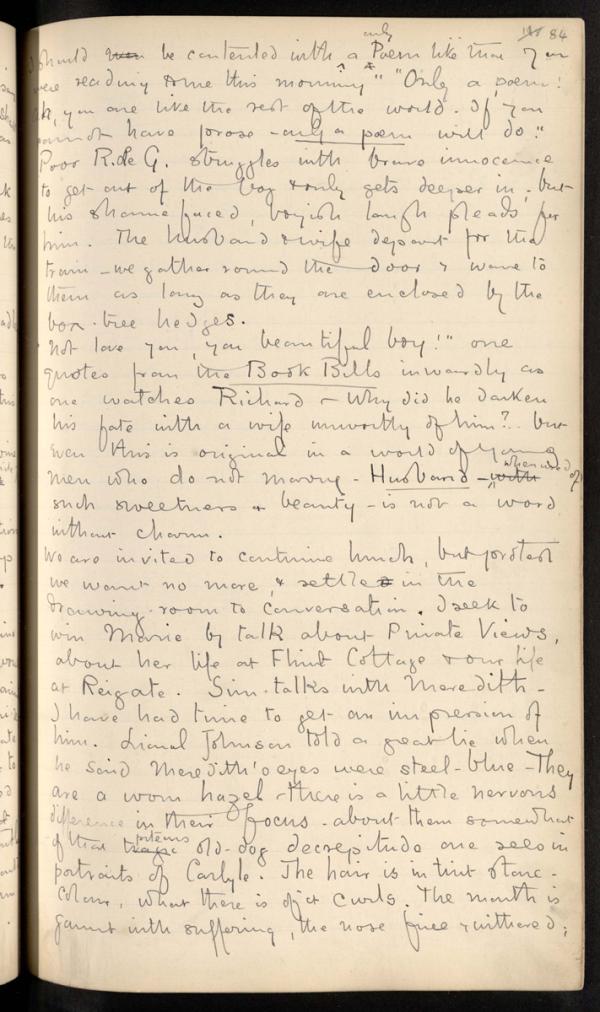 84
only
I should be contented with a Poem like that you
were reading to me this morning" "Only a poem!
Ah, you are like the rest of the world. If you
cannot have prose - only a poem will do."
Poor R. le G. struggles with brave innocence
to get out of the bog & only gets deeper in; but
his shamefaced, boyish laugh pleads for
him. The husband & wife depart for the
train - we gather round the door & wave to
them as long as they are enclosed by the
box-tree hedges.
"Not love you, you beautiful boy!" one
quotes from the Book Bills inwardly as
one watches Richard - Why did he darken
his fate with a wife unworthy of him? but
even this is original in a world of young
men who do not marry - Husband - with
when used of
such sweetness & beauty - is not a word
without charm.
We are invited to continue lunch, but protest
we want no more, & settle in the
drawing-room to conversation. I seek to
win Marie by talk about Private Views,
about her life at Flint Cottage & our life
at Reigate. Sim talks with Meredith -
I have had time to get an impression of
him. Lionel Johnson told a great lie when
he said Meredith's eyes were steel-blue - They
are a worn hazel - there is a little nervous
difference in their focus - about them somewhat
of that piteous old-dog decrepitude one sees in
portraits of Carlyle. The hair is in tint stone-
colour, what there is of it curls. The mouth is
gaunt with suffering, the nose fine & withered;